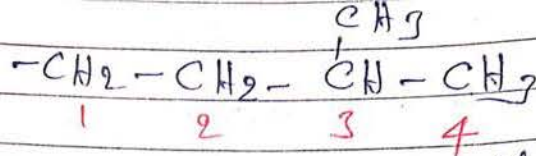 CH3
-CH2-CH2-CH-CH3
1 2 3 4